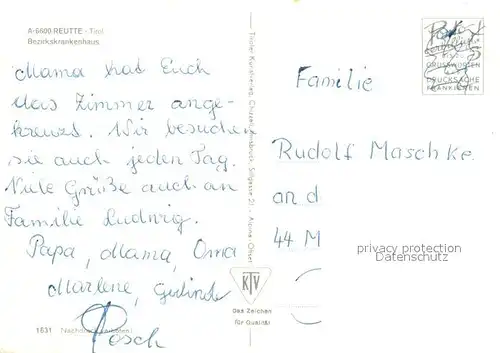 A-6600 REUTTE - Tirol
Bezirkskrankenhaus
Mama hat Euch
das Zimmer ange-
kreuzt. Wir besuchen
sie auch jeden Tag.
Viele Grüße auch an
Familie Ludwig.
Papa, Mama, Oma
Marlene, Gerlinde
Posch
1631 Nachdruck verboten!
Tiroler Kunstverlag Chizzali, Innsbruck
KTV
Das Zeichen
für Qualität
GLÜCKWÜNSCHEN
DRUCKSACHE
FRANKIEREN
Familie
Rudolf Maschke
an d
44 M
privacy protection
Datenschutz